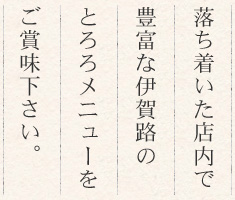 落ち着いた店内で
豊富な伊賀路の
とろろメニューを
ご賞味下さい。